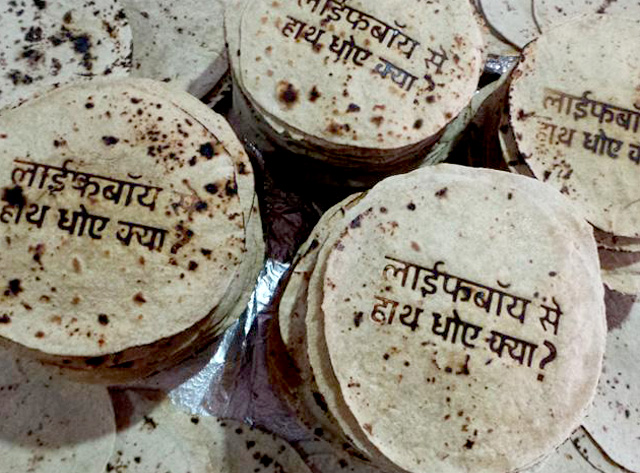 लाईफबॉय से
हाथ धोए क्या?
लाईफबॉय से
हाथ धोए क्या?
लाईफबॉ
हाथ धोए
लाईफबॉय से
हाथ धोए क्या?